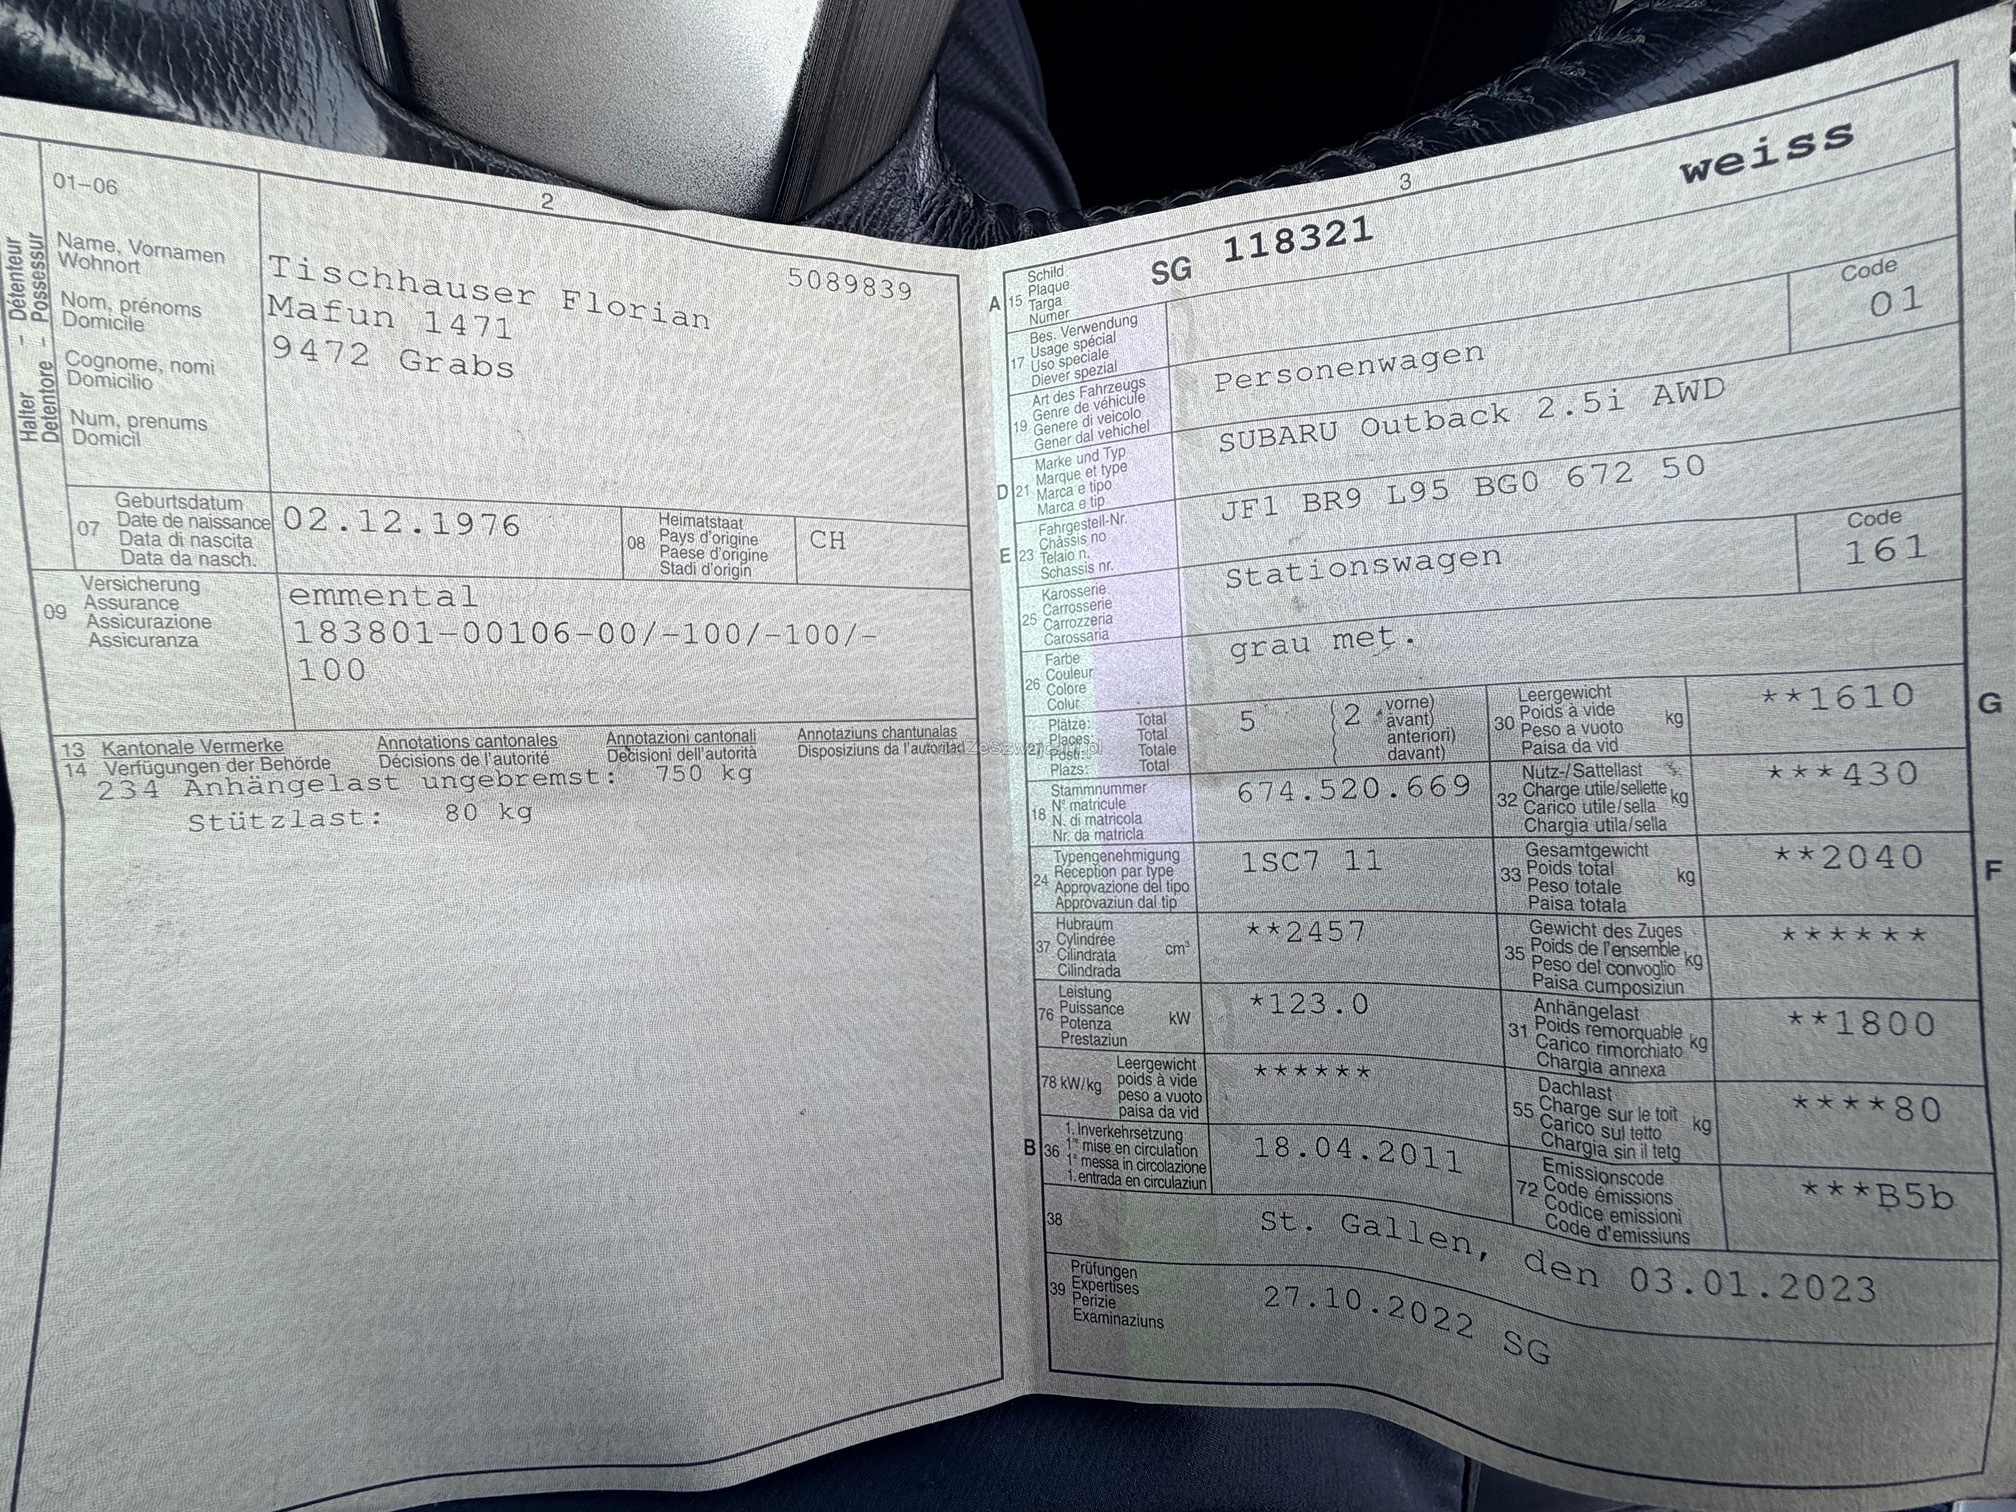 2
01-06
Halter - Détenteur
Detentore - Possessur
Name, Vornamen
Wohnort
Nom, prénoms
Domicile
Cognome, nomi
Domicilio
Num, prenums
Domicil
5089839
Tischhauser Florian
Mafun 1471
9472 Grabs
07
Geburtsdatum
Date de naissance
Data di nascita
Data da nasch.
02.12.1976
08
Heimatstaat
Pays d'origine
Paese d'origine
Stadi d'origin
CH
09
Versicherung
Assurance
Assicurazione
Assicuranza
emmental
183801-00106-00/-100/-100/-
100
13 Kantonale Vermerke Annotations cantonales Annotazioni cantonali Annotaziuns chantunalas
14 Verfügungen der Behörde Décisions de l'autorité Decisioni dell'autorità Disposiziuns da l'autoritad
234 Anhängelast ungebremst: 750 kg
Stützlast: 80 kg
3
weiss
A 15
Schild
Plaque
Targa
Numer
SG 118321
17
Bes. Verwendung
Usage spécial
Uso speciale
Diever spezial
19
Art des Fahrzeugs
Genre de véhicule
Genere di veicolo
Gener dal vehichel
Personenwagen
Code
01
D 21
Marke und Typ
Marque et type
Marca e tipo
Marca e tip
SUBARU Outback 2.5i AWD
E 23
Fahrgestell-Nr.
Châssis no
Telaio n.
Schassis nr.
JF1 BR9 L95 BG0 672 50
25
Karosserie
Carrosserie
Carrozzeria
Carossaria
Stationswagen
Code
161
26
Farbe
Couleur
Colore
Colur
grau met.
Plätze: Total
Places: Total
Posti: Totale
Plazs: Total
5
2
vorne)
avant)
anteriori)
davant)
30
Leergewicht
Poids à vide
Peso a vuoto
Paisa da vid
kg
**1610
G
18
Stammnummer
N° matricule
N. di matricola
Nr. da matricla
674.520.669
32
Nutz-/Sattellast
Charge utile/sellette
Carico utile/sella
Chargia utila/sella
kg
***430
24
Typengenehmigung
Réception par type
Approvazione del tipo
Approvaziun dal tip
1SC7 11
33
Gesamtgewicht
Poids total
Peso totale
Paisa totala
kg
**2040
F
37
Hubraum
Cylindrée
Cilindrata
Cilindrada
cm³
**2457
35
Gewicht des Zuges
Poids de l'ensemble
Peso del convoglio
Paisa cumposiziun
kg
******
76
Leistung
Puissance
Potenza
Prestaziun
kW
*123.0
31
Anhängelast
Poids remorquable
Carico rimorchiato
Chargia annexa
kg
**1800
78 kW/kg
Leergewicht
poids à vide
peso a vuoto
paisa da vid
******
55
Dachlast
Charge sur le toit
Carico sul tetto
Chargia sin il tetg
kg
****80
B 36
1. Inverkehrsetzung
1re mise en circulation
1a messa in circolazione
1. entrada en circulaziun
18.04.2011
72
Emissionscode
Code émissions
Codice emissioni
Code d'emissiuns
***B5b
38
St. Gallen, den 03.01.2023
39
Prüfungen
Expertises
Perizie
Examinaziuns
27.10.2022 SG